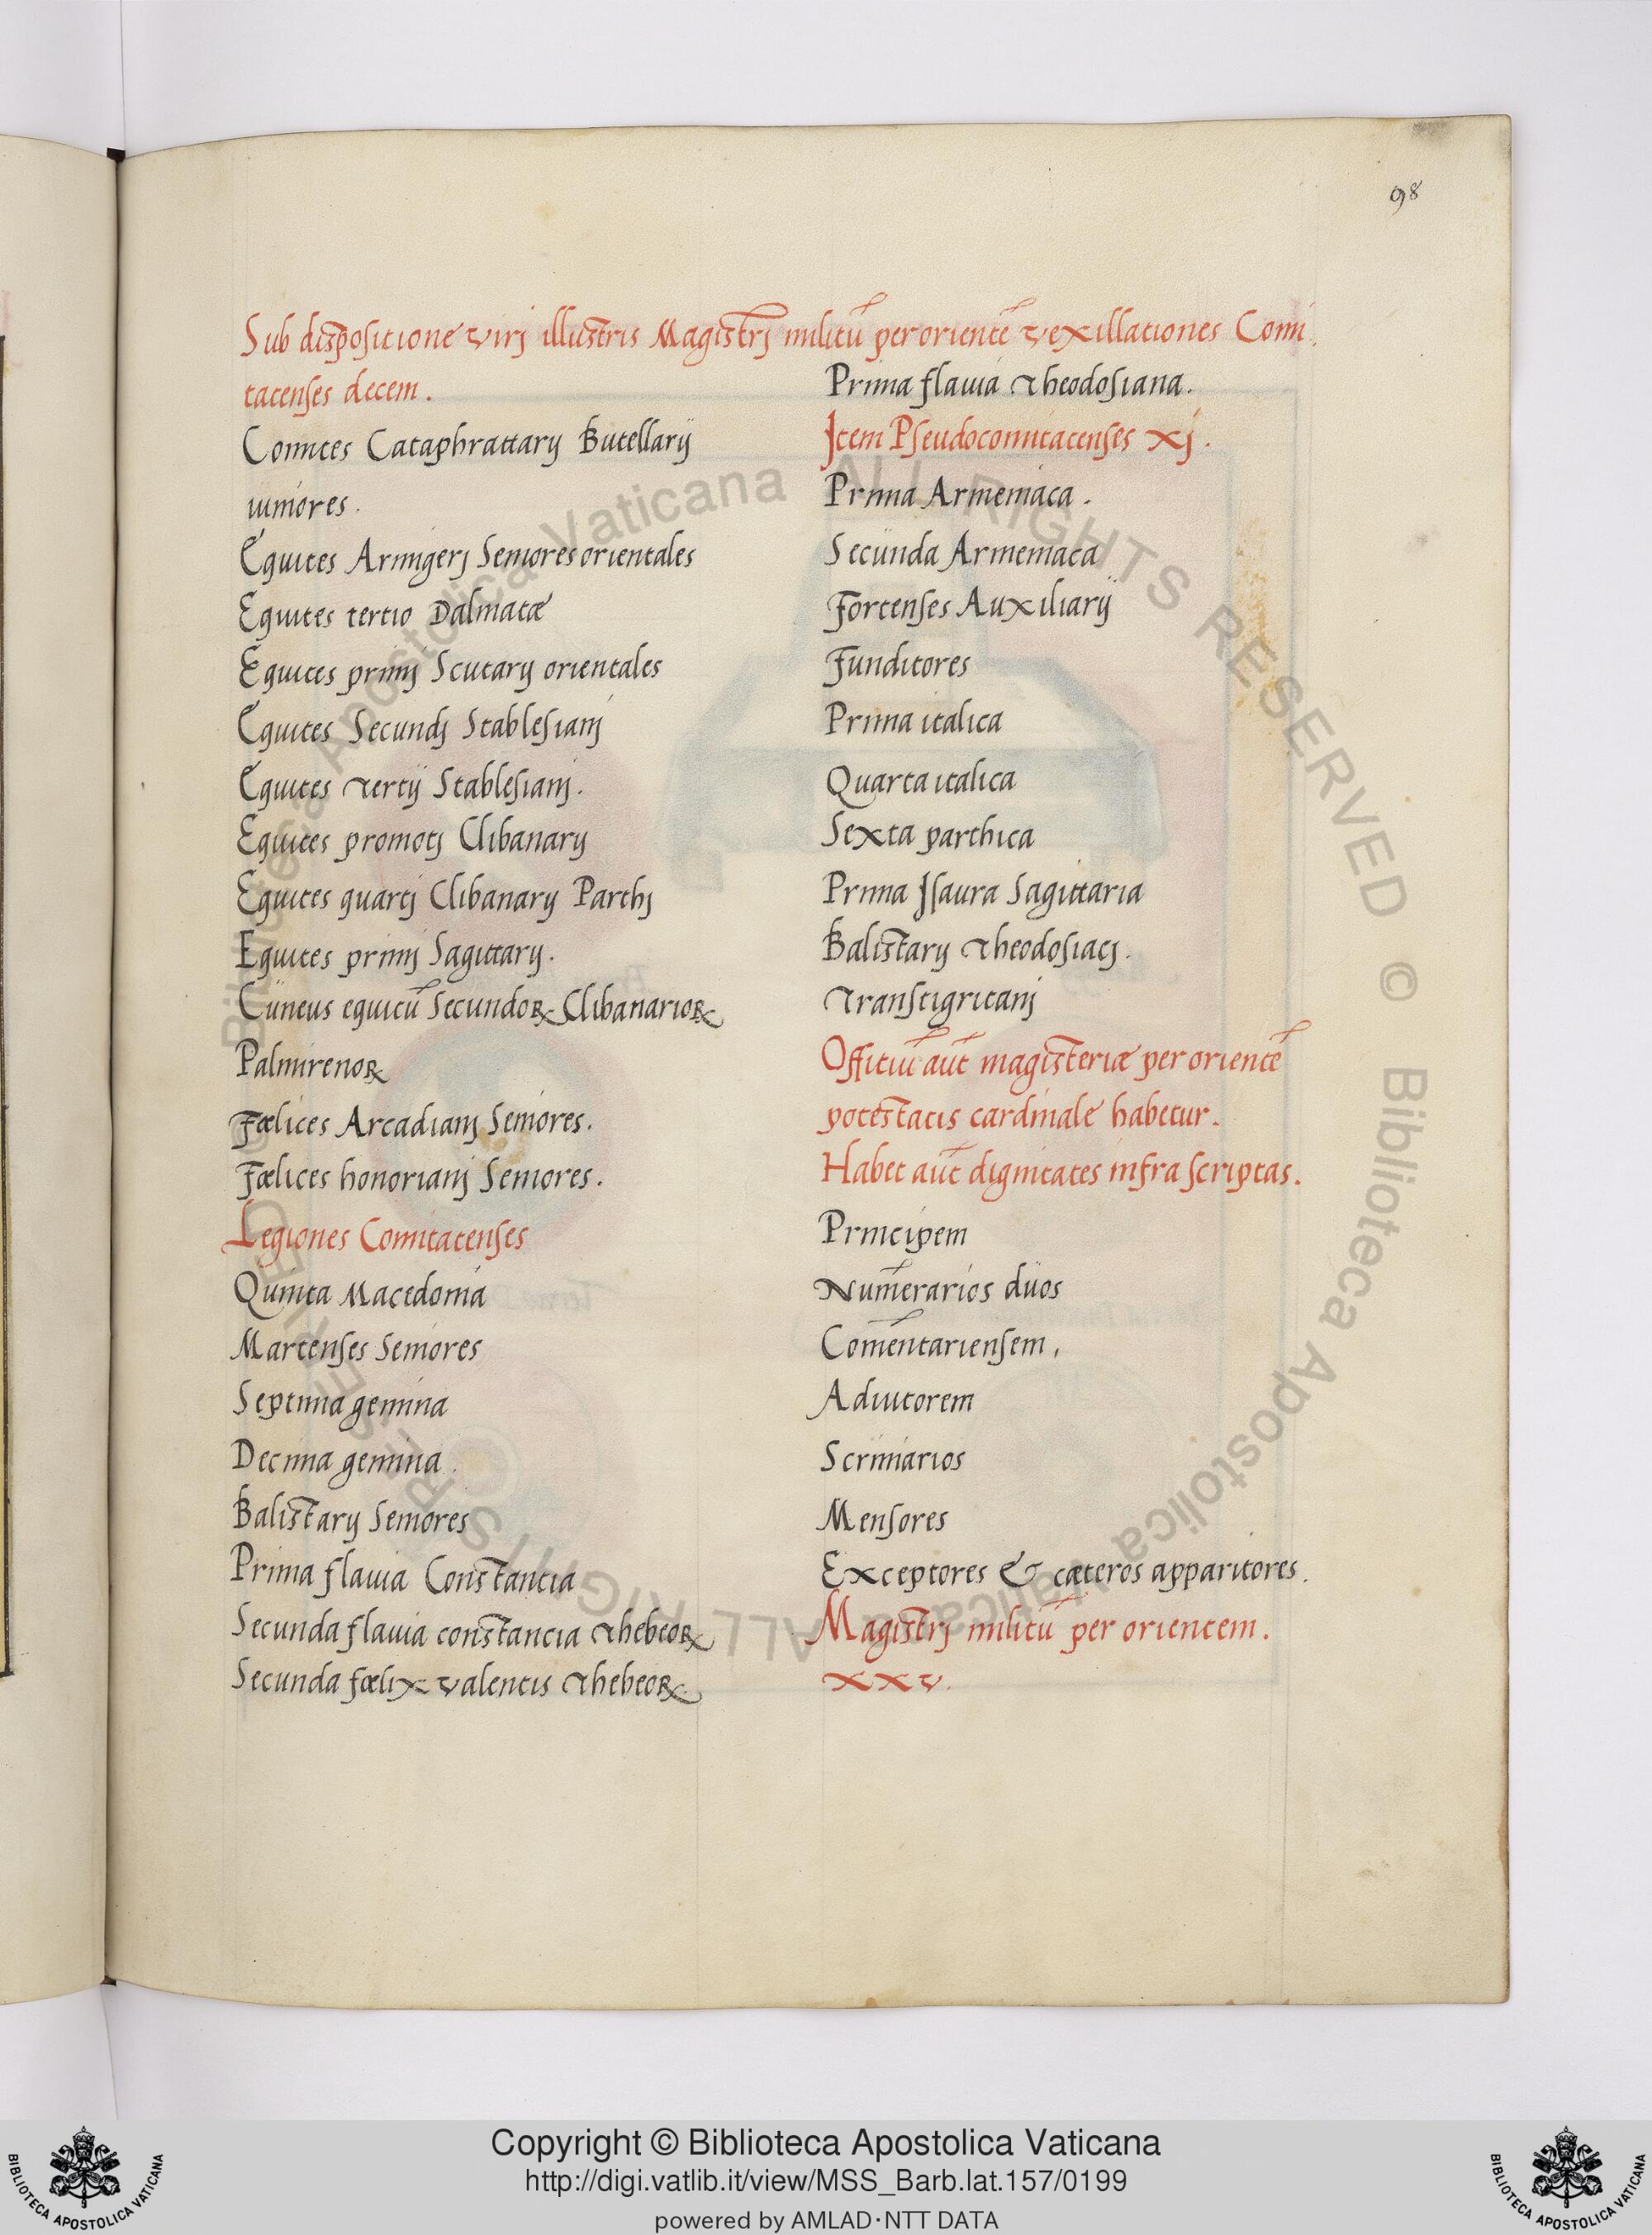 98
Sub dispositione virj illustris Magistrj militū per orientē vexillationes Comi
tacenses decem.
Comites Cataphrattarij Butellarij
iuniores.
Equites Armigerj Seniores orientales
Equites tertio Dalmatæ
Equites primj Scutarij orientales
Equites Secundj Stablesianj
Equites tertij Stablesianj.
Equites promotj Clibanarij
Equites quartj Clibanarij Parthj
Equites primj Sagittarij.
Cuneus equitū Secundoꝝ Clibanarioꝝ
Palmirenoꝝ
Fœlices Arcadianj Seniores.
Fœlices honorianj Seniores.
Legiones Comitatenses
Quinta Macedonia
Martenses Seniores
Septima gemina
Decima gemina
Balistarij Seniores
Prima flauia Constantia
Secunda flauia constantia thebeoꝝ
Secunda fœlix valentis thebeoꝝ
Prima flauia theodosiana.
Item Pseudocomitatenses xj.
Prima Armeniaca.
Secunda Armeniaca
Fortenses Auxiliarij
Funditores
Prima italica
Quarta italica
Sexta parthica
Prima Isaura Sagittaria
Balistarij theodosiacj.
Transtigritanj
Offitiū aūt magisteriæ per orientē
potestatis cardinale habetur.
Habet aūt dignitates infra scriptas.
Principem
Num̄erarios duos
Com̄entariensem,
Adiutorem
Scriniarios
Mensores
Exceptores & cæteros apparitores.
Magistrj militū per orientem.
xxv.
Biblioteca Apostolica Vaticana ALL RIGHTS RESERVED © Biblioteca Apostolica Vaticana ALL RIGHTS RESERVED ©
Copyright © Biblioteca Apostolica Vaticana
http://digi.vatlib.it/view/MSS_Barb.lat.157/0199
powered by AMLAD·NTT DATA
BIBLIOTECA APOSTOLICA VATICANA
BIBLIOTECA APOSTOLICA VATICANA